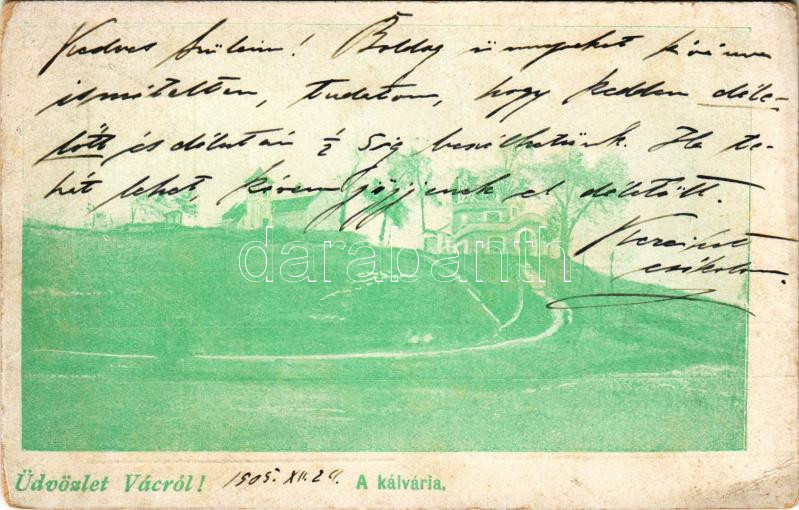 Kedves Szüleim! Boldog ünnepeket kívánva
ismételten, tudatom, hogy kedden déle-
lőtt és délután ½ 5ig beszélhetünk. Ha te-
hát lehet, kérem jöjjenek el délelőtt.
Kezeiket
csókolom.
darabanth
Üdvözlet Vácról! 1905. XII. 24. A kálvária.